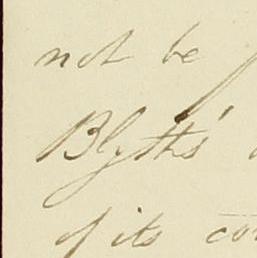 not be
Blyth's
of its